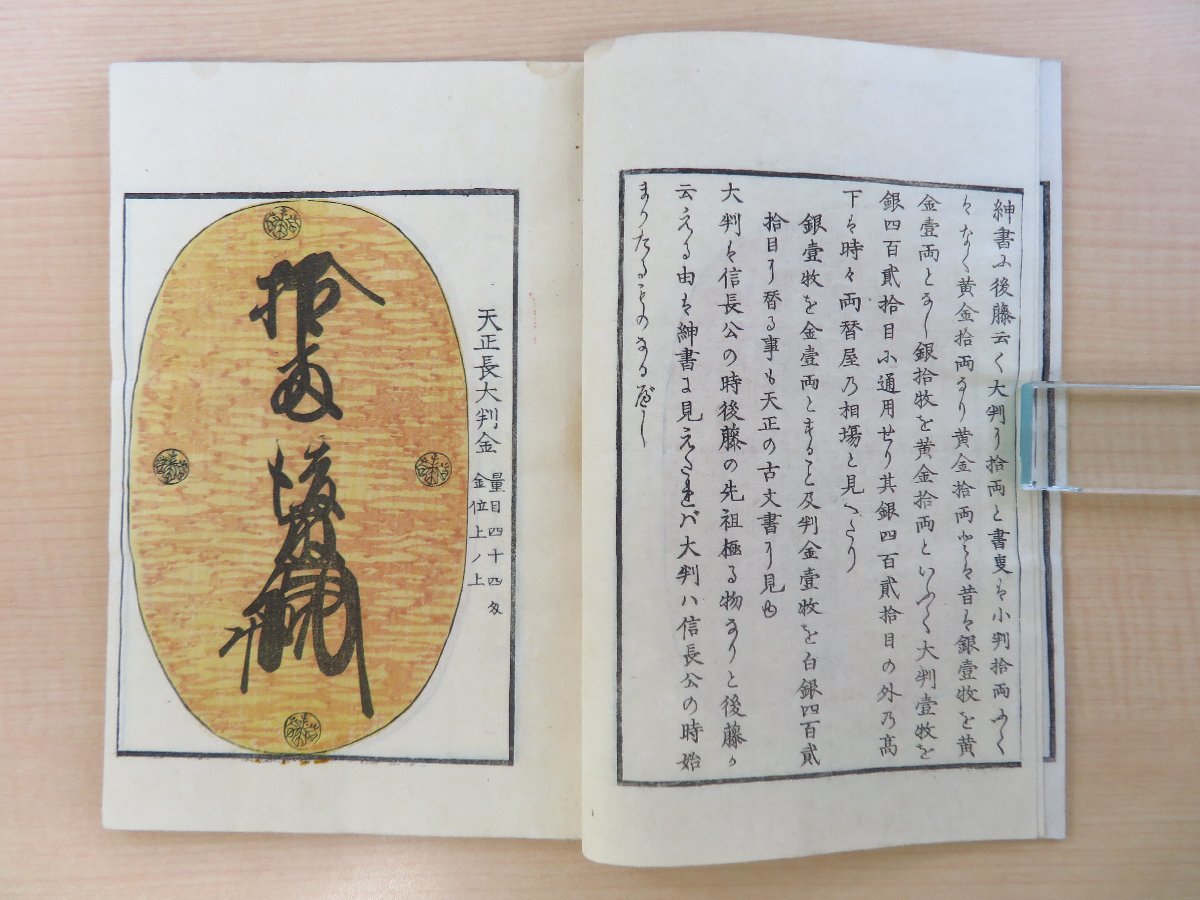 紳書ニ後藤云く大判に拾両と書叓ハ小判拾両ふく
ハなく黄金拾両なり黄金拾両とハ昔ハ銀壹枚を黄
金壹両となし銀拾枚を黄金拾両といふく大判壹枚を
銀四百貳拾目に通用せり其銀四百貳拾目の外乃高
下ハ時々両替屋乃相場と見へたり
銀壹枚を金壹両とする事及判金壹枚を白銀四百貳
拾目に替る事も天正の古文書に見ゆ
大判ハ信長公の時後藤の先祖極る物なりと後藤か
云える由ハ紳書に見えたれバ大判ハ信長公の時始
まりたるものなる歟し
天正長大判金
量目四十四匁
金位上ノ上
拾両後藤